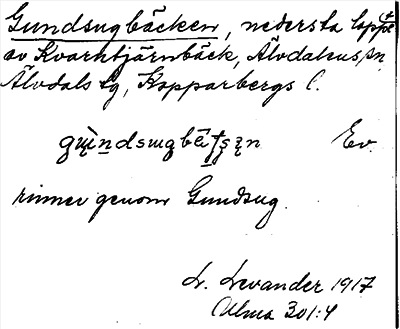 Gundsugbäcken, nedersta loppet
av Kvarntjärnbäck, Älvdalens sn,
Älvdals tg, Kopparbergs l.
Ev.
rinner genom Gundsug.
L. Levander 1917
Ulma 301:4